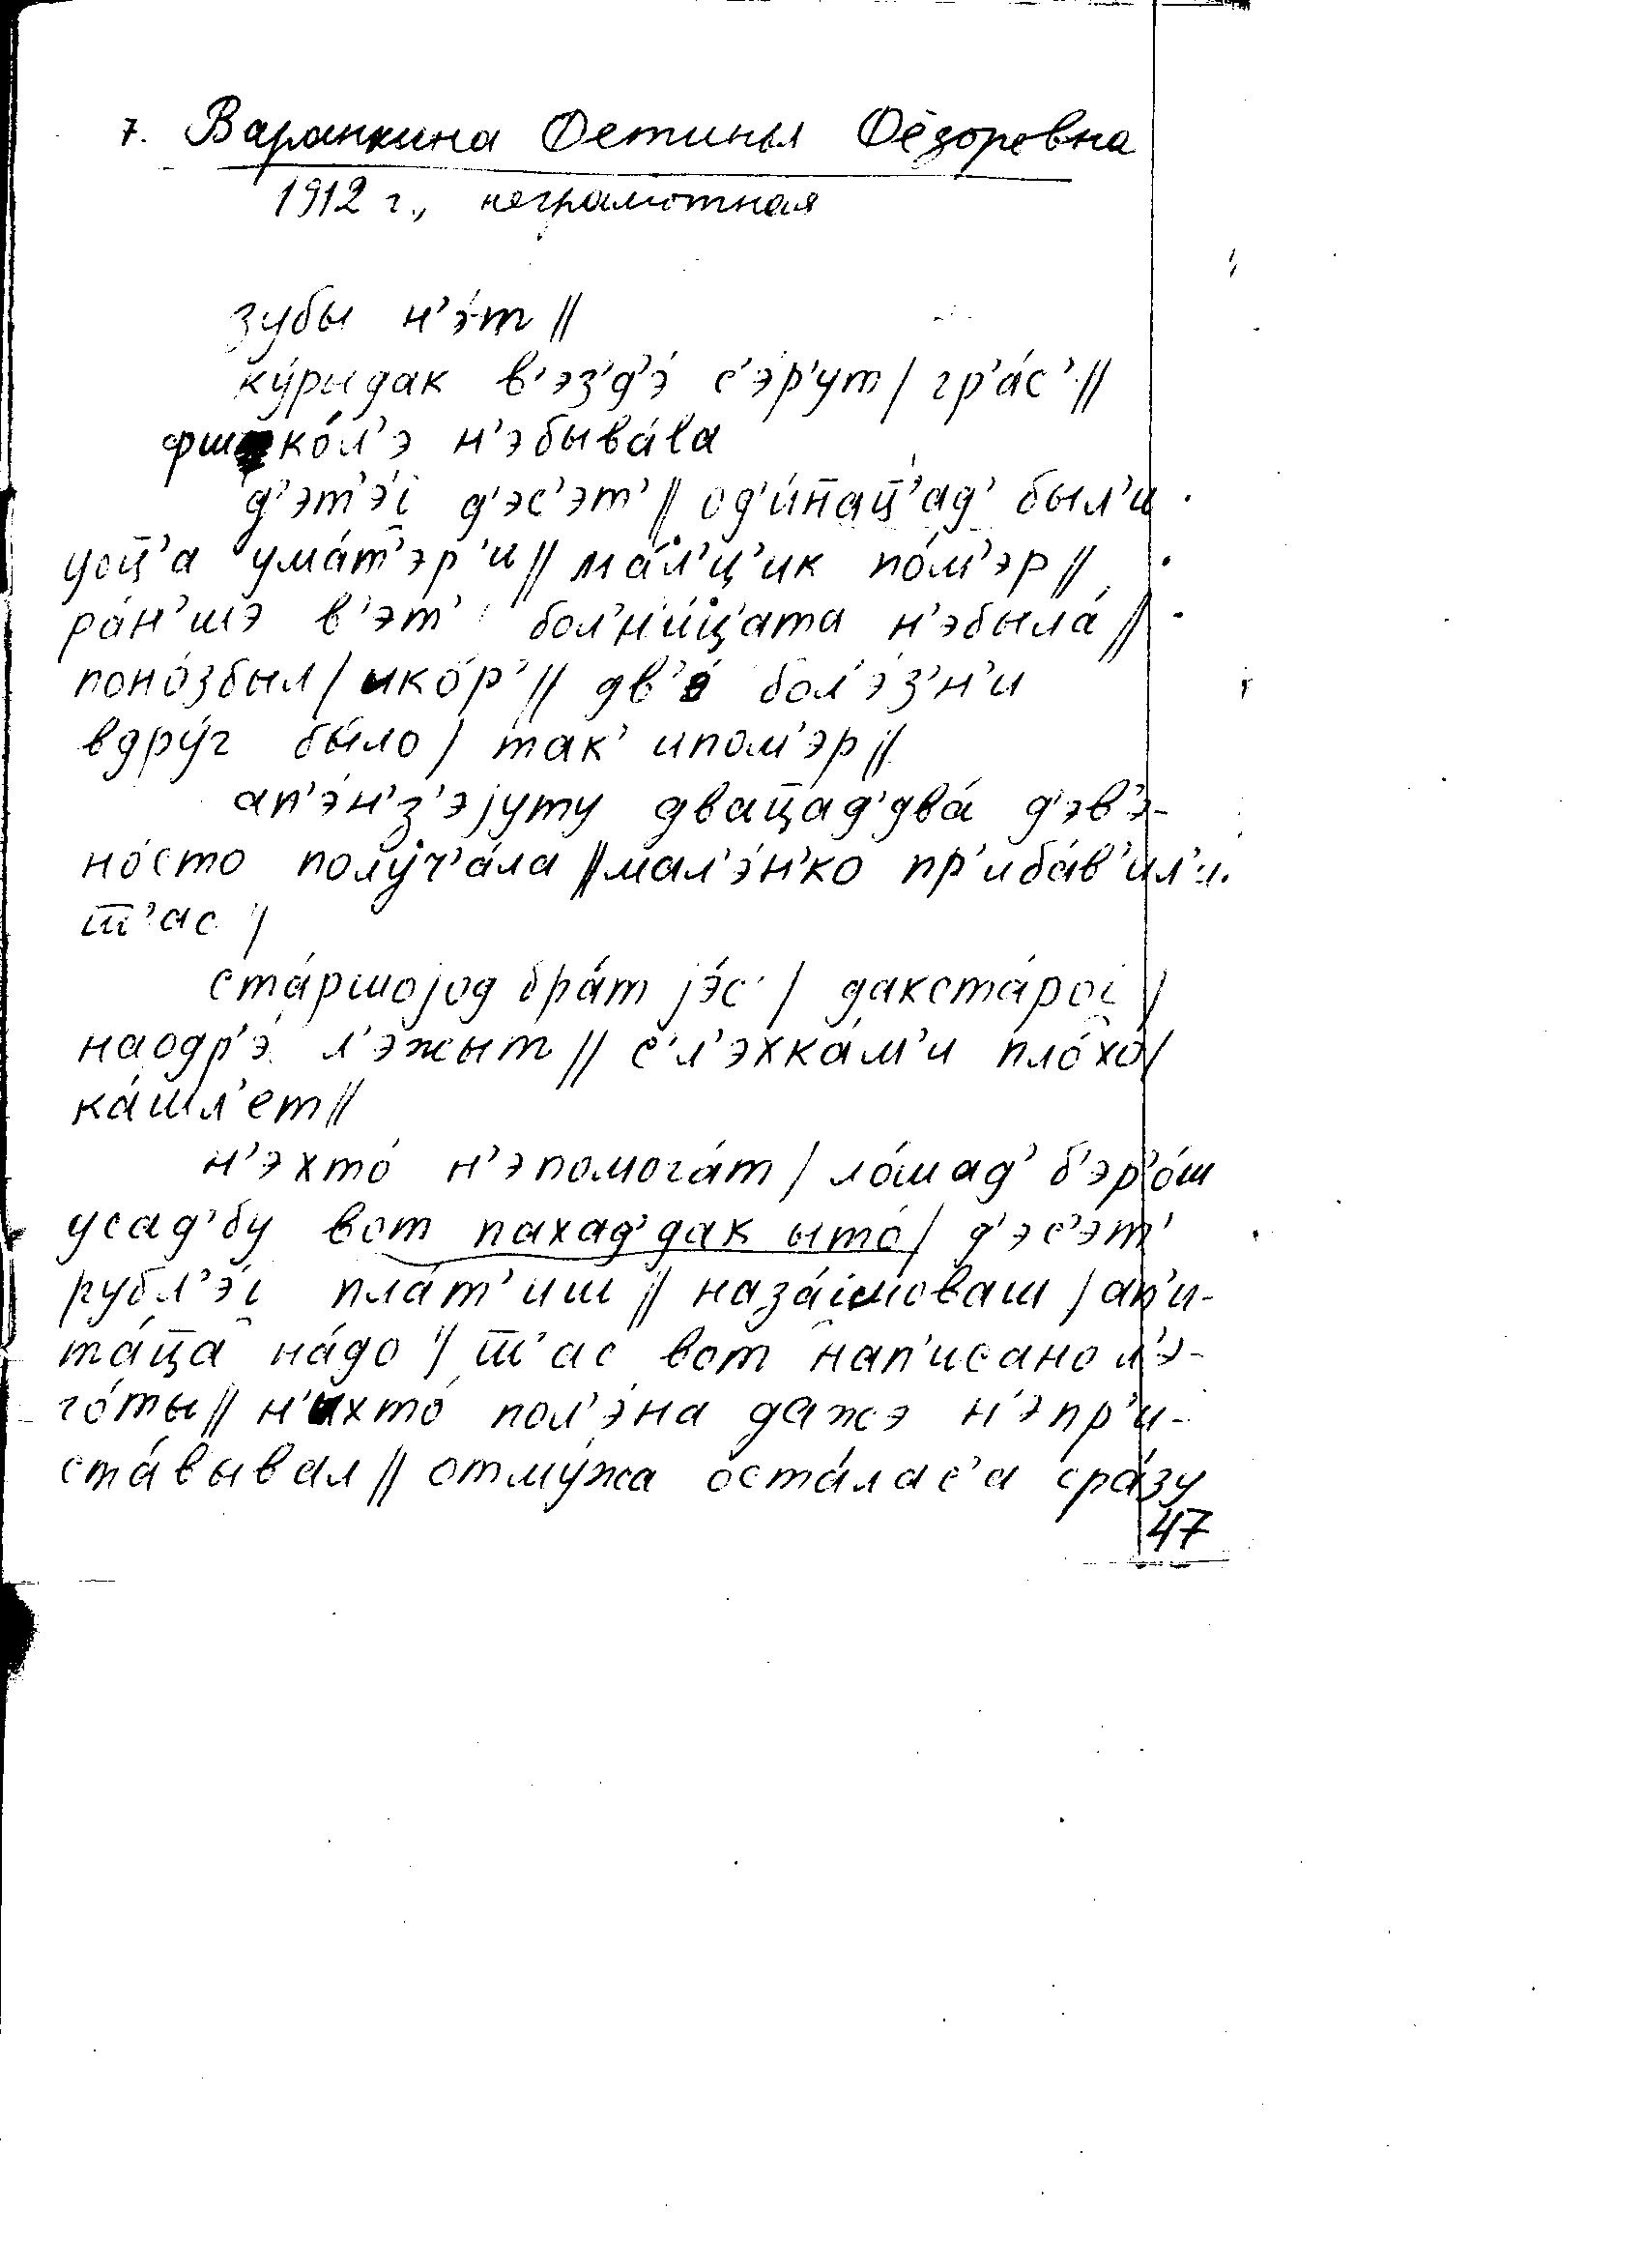 7. Варанкина Фетинья Фёдоровна
1912 г., неграмотная
зубы н’э́т //
ку́рыдак в’эз’д’э́ с’э́р’ут / гр’а́с’ //
фшко́л’э н’эбыва́lа
д’эт’э́i д’эс’эт’ // од’и́н̄ац̄’ад’ был’и
уоц̄’а ума́т’эр’и // ма́л’ц’ик по́м’эр //
ра́н’шэ в’эт’ бол’н’и́ц’ата н’эбыла́ //
поно́збыл / ико́р’ // дв’э́ бол’э́з’н’и
вдру́г бы́ло / так’ ипом’эр //
ап’э́н’з’эjуту двац̄ад’два́ д’эв’э-
но́сто получ’а́ла // мал’э́н’ко пр’иба́в’ил’и
ш̄’ас /
ста́ршоjод бра́т jэ́с’ / дакста́роi /
наодр’э́ л’эжыт // с’л’эхка́м’и пло́хо /
ка́шл’ет //
н’эхто́ н’эпомога́т / ло́шад’ б’эр’о́ш
усад’бу вот пахад’дак ыто́ / д’эс’эт’
рубл’э́i пла́т’иш // наза́iмоваш / ап’и-
та́ц̄а на́до / ш̄’ас вот нап’исано л’э-
го́ты // н’ихто́ пол’э́на дажэ н’эпр’и-
ста́вывал // отму́жа оста́лас’а сра́зу
47